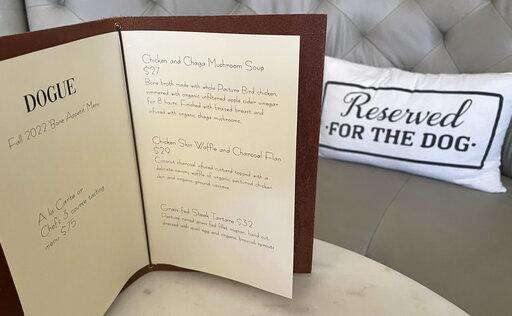 DOGUE
Fall 2022 Bone Appetit Menu
A la Carte or
Chef's 3 course tasting
menu $75
Chicken and Chaga Mushroom Soup
$27
Bone broth made with whole Pasture Bird chicken,
simmered with organic unfiltered apple cider vinegar
for 8 hours. Finished with breast and
infused with organic chaga mushrooms.
Chicken Skin Waffle and Charcoal Flan
$29
Coconut charcoal infused custard topped with a
delicate savory waffle of organic pastured chicken
skin and organic ground
Grass fed Steak Tartare $32
Pasture raised grass fed filet mignon, hand cut,
dressed with quail egg and organic
Reserved
·FOR THE DOG·